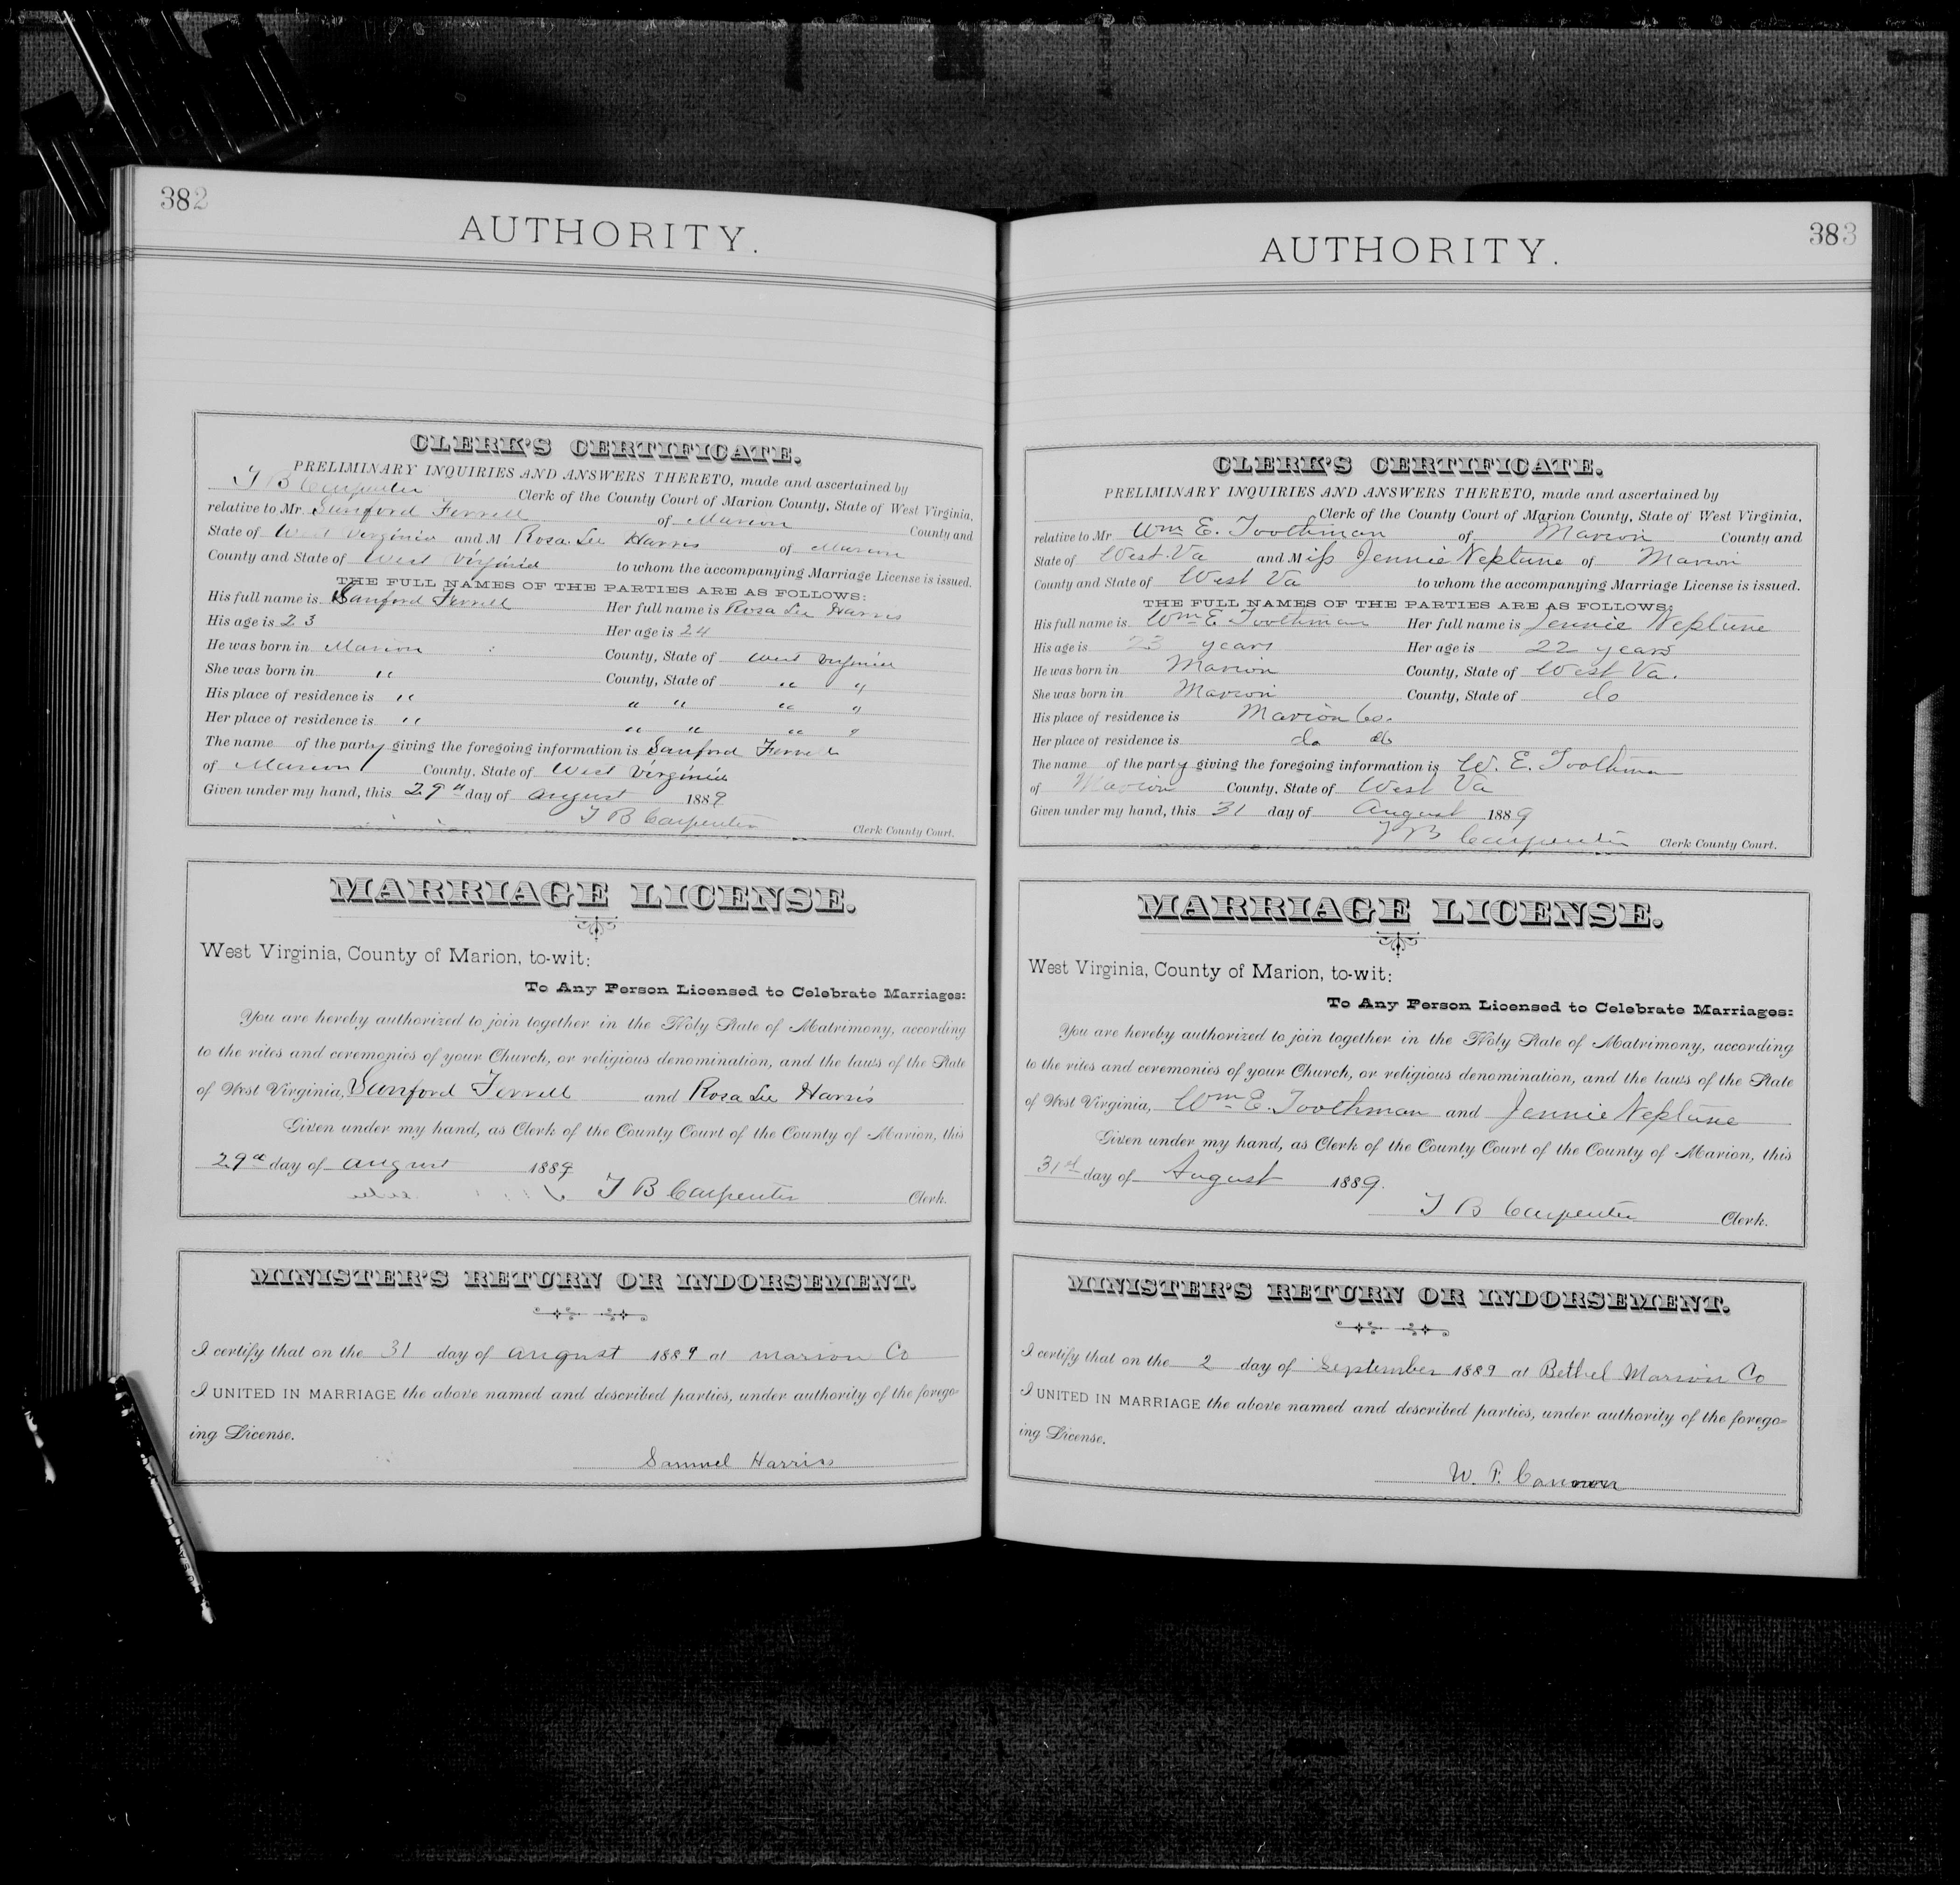 382
AUTHORITY.
CLERK'S CERTIFICATE.
PRELIMINARY INQUIRIES AND ANSWERS THERETO, made and ascertained by
T B Carpenter Clerk of the County Court of Marion County, State of West Virginia,
relative to Mr. Sanford Ferrell of Marion County and
State of West Virginia and M Rosa Lee Harris of Marion
County and State of West Virginia to whom the accompanying Marriage License is issued.
THE FULL NAMES OF THE PARTIES ARE AS FOLLOWS:
His full name is Sanford Ferrell Her full name is Rosa Lee Harris
His age is 23 Her age is 24
He was born in Marion County, State of West Virginia
She was born in " County, State of " "
His place of residence is " " " " "
Her place of residence is " " " " "
The name of the party giving the foregoing information is Sanford Ferrell
of Marion County, State of West Virginia
Given under my hand, this 29th day of August 1889
T B Carpenter Clerk County Court.
MARRIAGE LICENSE.
West Virginia, County of Marion, to-wit:
To Any Person Licensed to Celebrate Marriages:
You are hereby authorized to join together in the Holy State of Matrimony, according
to the rites and ceremonies of your Church, or religious denomination, and the laws of the State
of West Virginia, Sanford Ferrell and Rosa Lee Harris
Given under my hand, as Clerk of the County Court of the County of Marion, this
29th day of August 1889
T B Carpenter Clerk.
MINISTER'S RETURN OR INDORSEMENT.
I certify that on the 31 day of August 1889 at Marion Co
I UNITED IN MARRIAGE the above named and described parties, under authority of the forego-
ing License.
Samuel Harriss
383
AUTHORITY.
CLERK'S CERTIFICATE.
PRELIMINARY INQUIRIES AND ANSWERS THERETO, made and ascertained by
Clerk of the County Court of Marion County, State of West Virginia,
relative to Mr Wm E. Toothman of Marion County and
State of West Va and Miss Jennie Neptune of Marion
County and State of West Va to whom the accompanying Marriage License is issued.
THE FULL NAMES OF THE PARTIES ARE AS FOLLOWS:
His full name is Wm E. Toothman Her full name is Jennie Neptune
His age is 23 years Her age is 22 years
He was born in Marion County, State of West Va.
She was born in Marion County, State of do
His place of residence is Marion Co.
Her place of residence is do do
The name of the party giving the foregoing information is W. E. Toothman
of Marion County, State of West Va
Given under my hand, this 31 day of August 1889
T B Carpenter Clerk County Court.
MARRIAGE LICENSE.
West Virginia, County of Marion, to-wit:
To Any Person Licensed to Celebrate Marriages:
You are hereby authorized to join together in the Holy State of Matrimony, according
to the rites and ceremonies of your Church, or religious denomination, and the laws of the State
of West Virginia, Wm E. Toothman and Jennie Neptune
Given under my hand, as Clerk of the County Court of the County of Marion, this
31st day of August 1889.
T B Carpenter Clerk.
MINISTER'S RETURN OR INDORSEMENT.
I certify that on the 2 day of September 1889 at Bethel Marion Co
I UNITED IN MARRIAGE the above named and described parties, under authority of the forego-
ing License.
W. P.